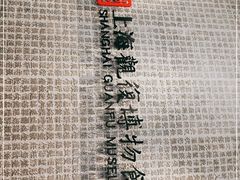 上海觀復博物館
SHANGHAI GUANFU MUSE